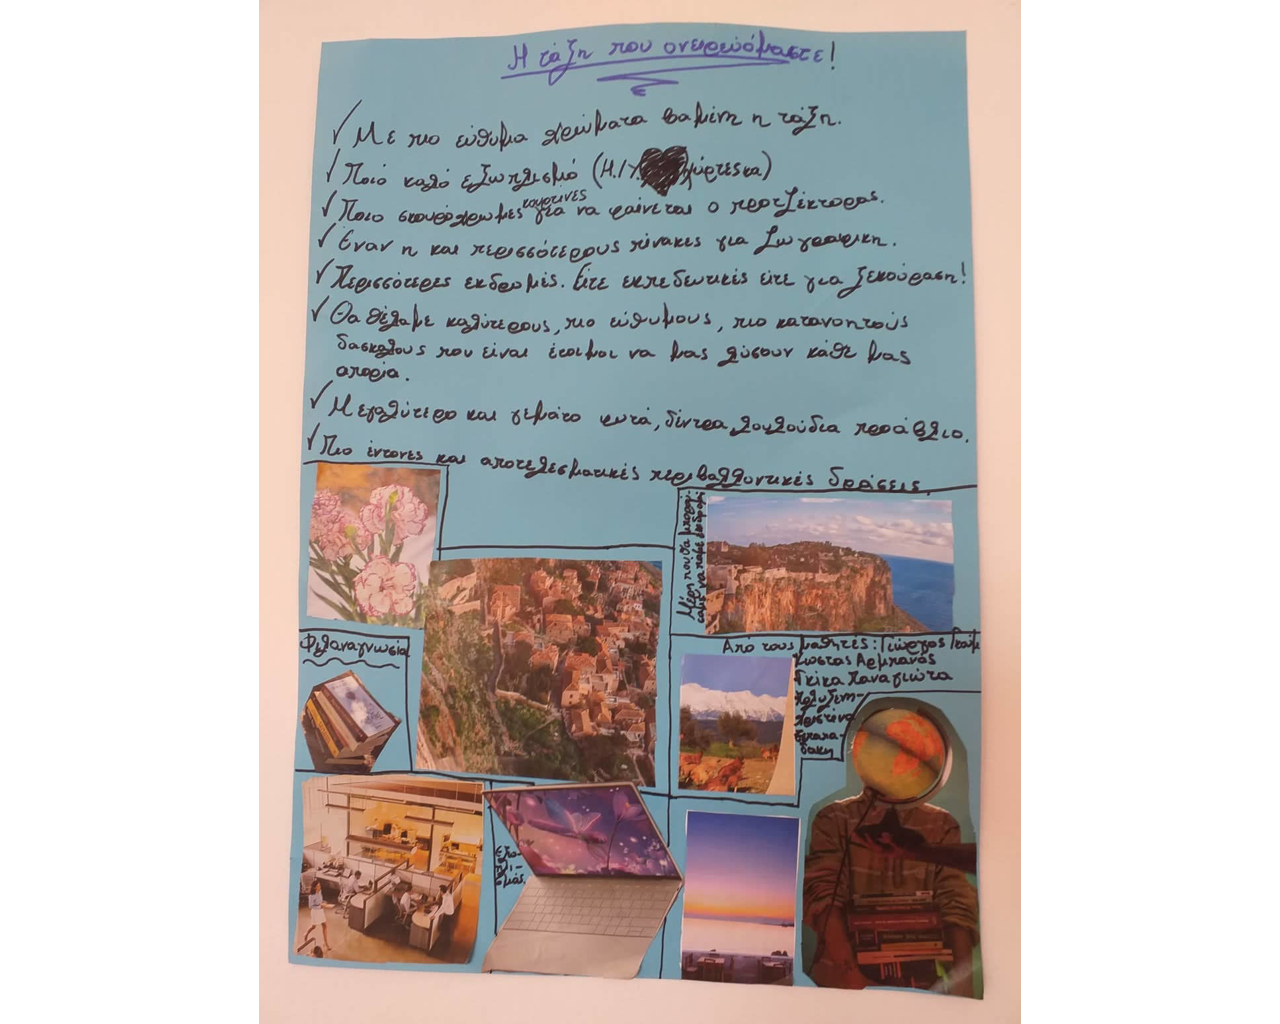 Η τάξη που ονειρευόμαστε!
✓ Με πιο εύθυμα χρώματα βαμένη η τάξη.
✓ Ποιό καλό εξωπλισμό (Η/Υ
✓ Ποιο σκουρόχρωμες κουρτίνες για να φαίνεται ο προτζέκτορας.
✓ Έναν η και περισσότερους πίνακες για ζωγραφικη.
✓ Περισσότερες εκδρομές. Είτε εκπεδευτικές είτε για ξεκούραση!
✓ Θα θέλαμε καλύτερους, πιο εύθυμους, πιο κατανοητούς
δασκαλους που είναι έτοιμοι να μας λύσουν κάθε μας
απορία.
✓ Μεγαλύτερο και γεμάτο φυτά, δέντρα, λουλούδια προάβλιο.
✓ Πιο έντονες και αποτελεσματικές περιβαλλοντικές δράσεις.
Μέρη που θα μπορού-
σαμε να πάμε εκδρομή
Φιλαναγνωσία
Από τους μαθητές: Γιώργος
Κώστας Αρμπανάς
Γκίκα Παναγιώτα
Πολυξένη-
Χριστίνα
Εξο-
πλι-
σμός